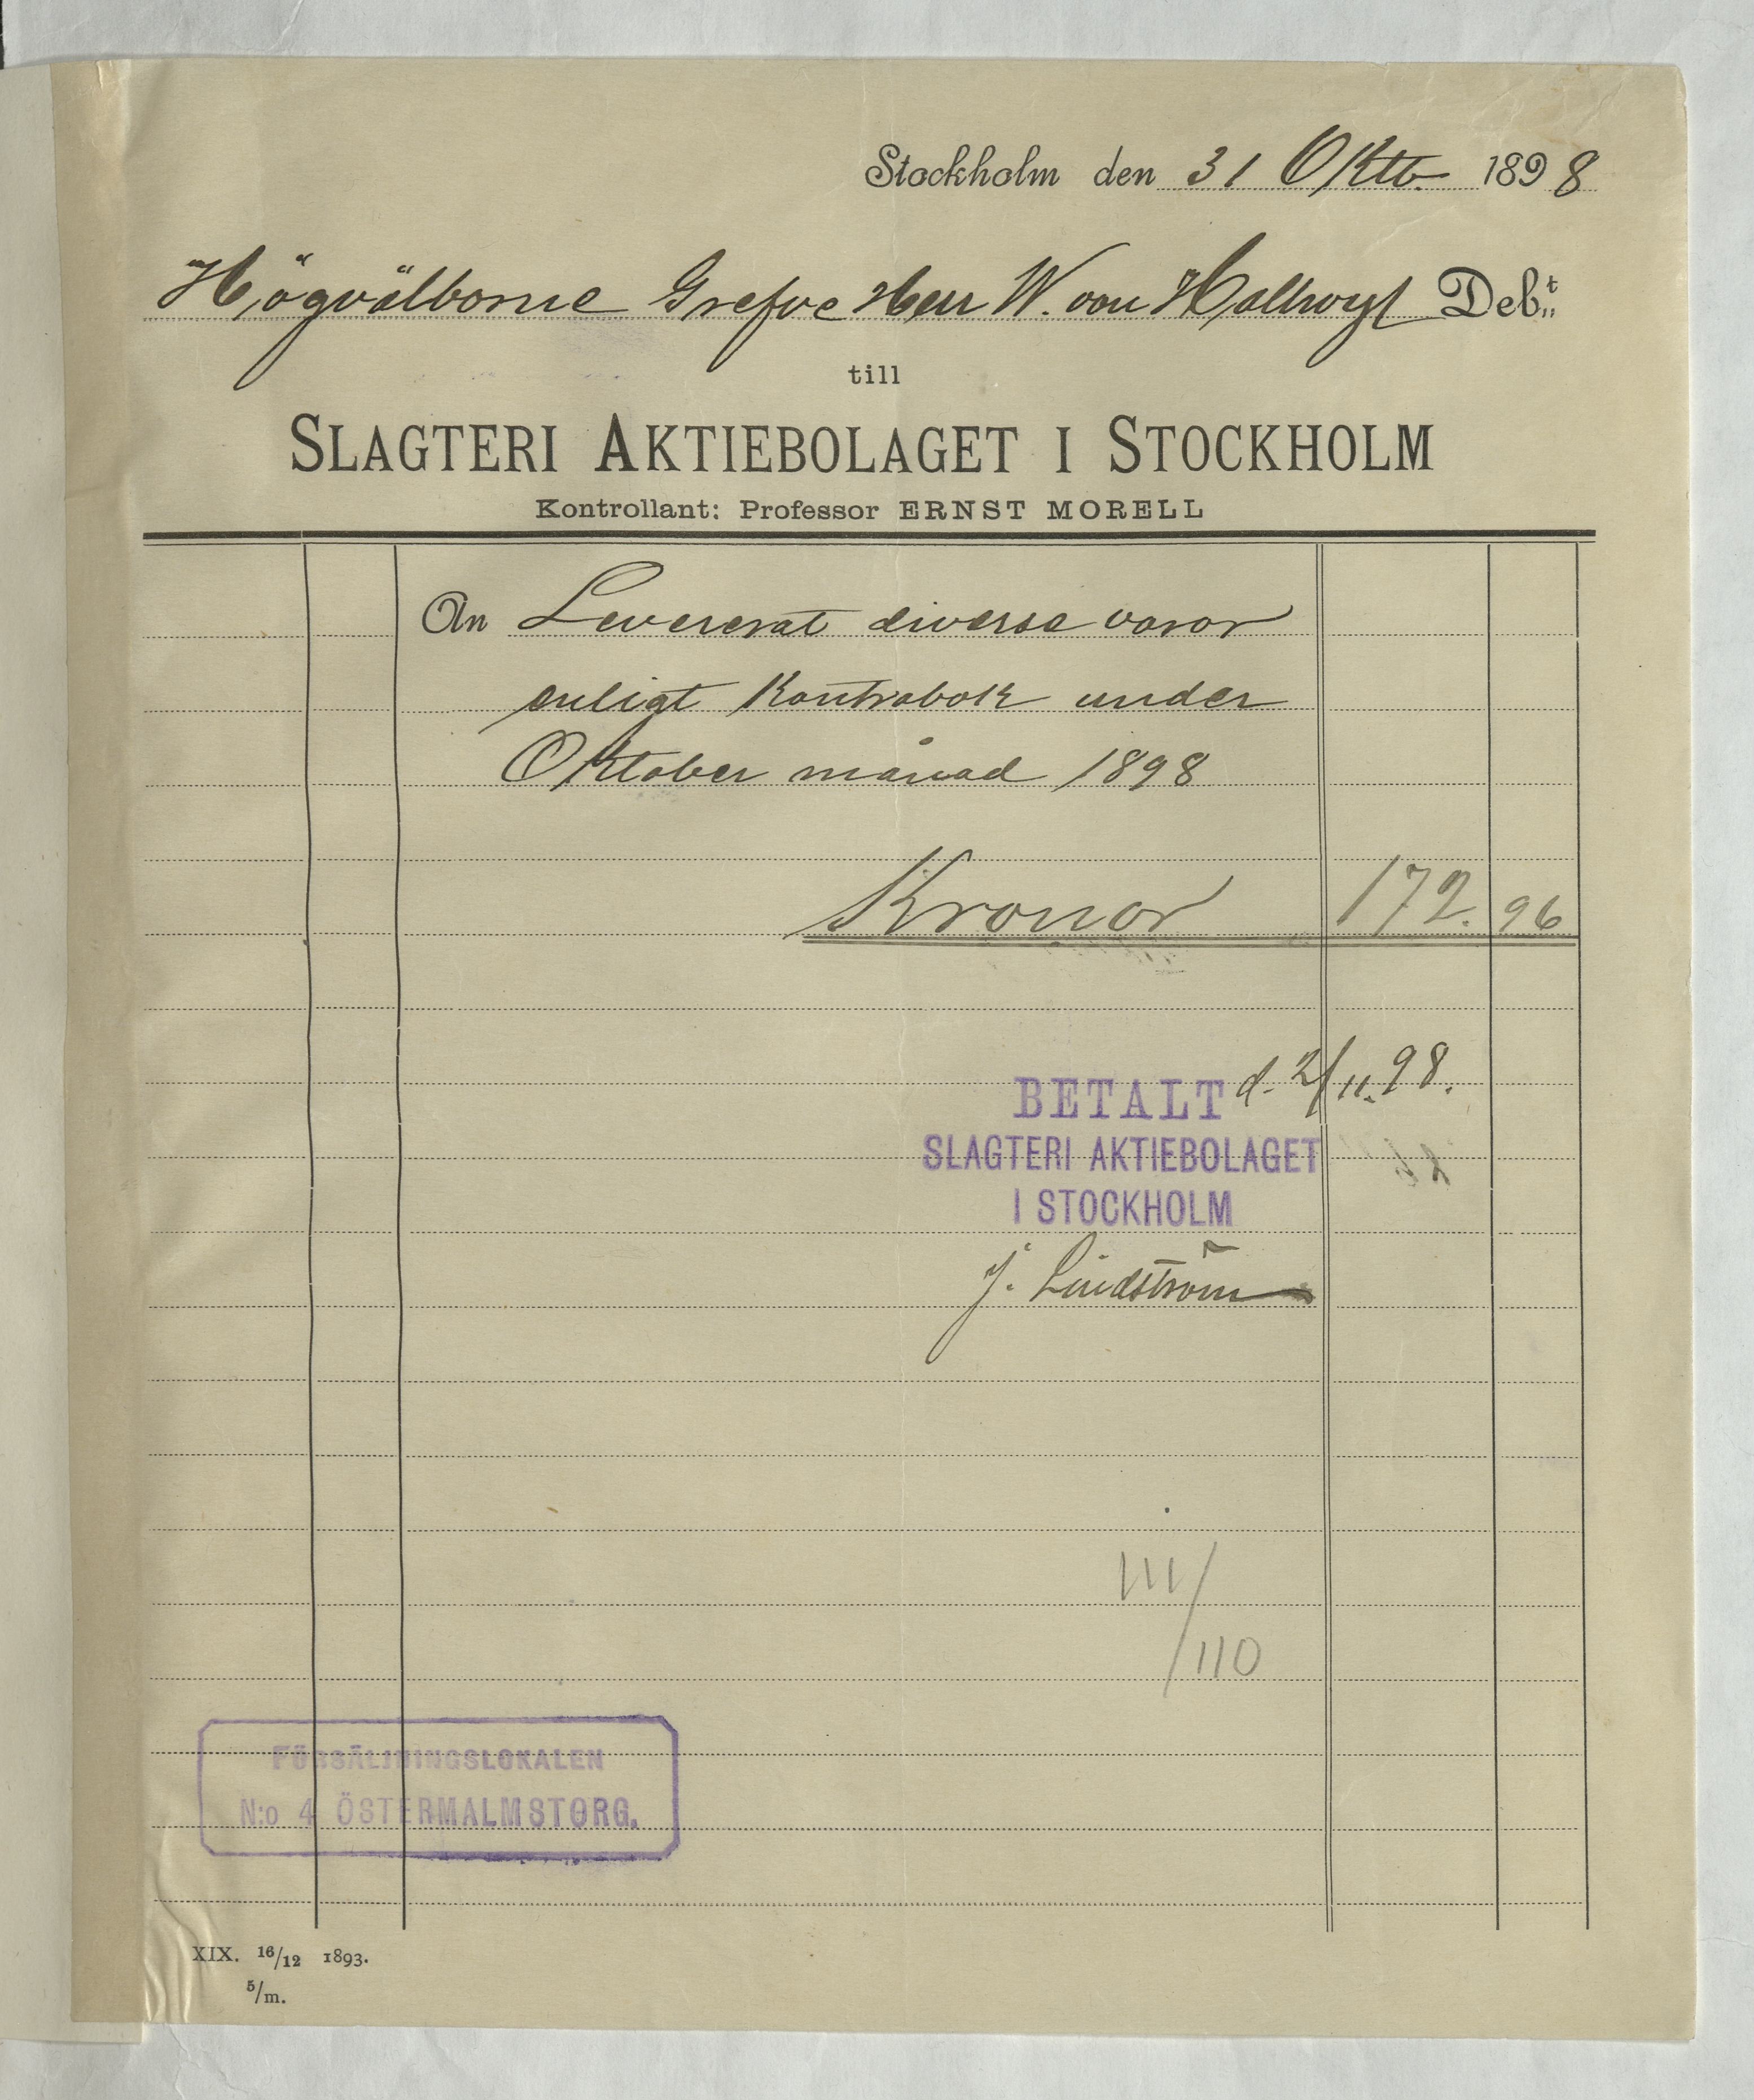 Stockholm den 31 Oktb. 1898
Högvälborne Grefve Herr W. von Hallwyl Deb:t
till
SLAGTERI AKTIEBOLAGET I STOCKHOLM
Kontrollant: Professor ERNST MORELL
An Levererat diverse varor
enligt Kontrabok under
Oktober månad 1898
Kronor 172.96
BETALT d. 2/11.98.
SLAGTERI AKTIEBOLAGET
I STOCKHOLM
J. Lindström
111/
/110
FÖRSÄLJNINGSLOKALEN
N:o 4 ÖSTERMALMSTORG.
XIX. 16/12 1893.
5/m.